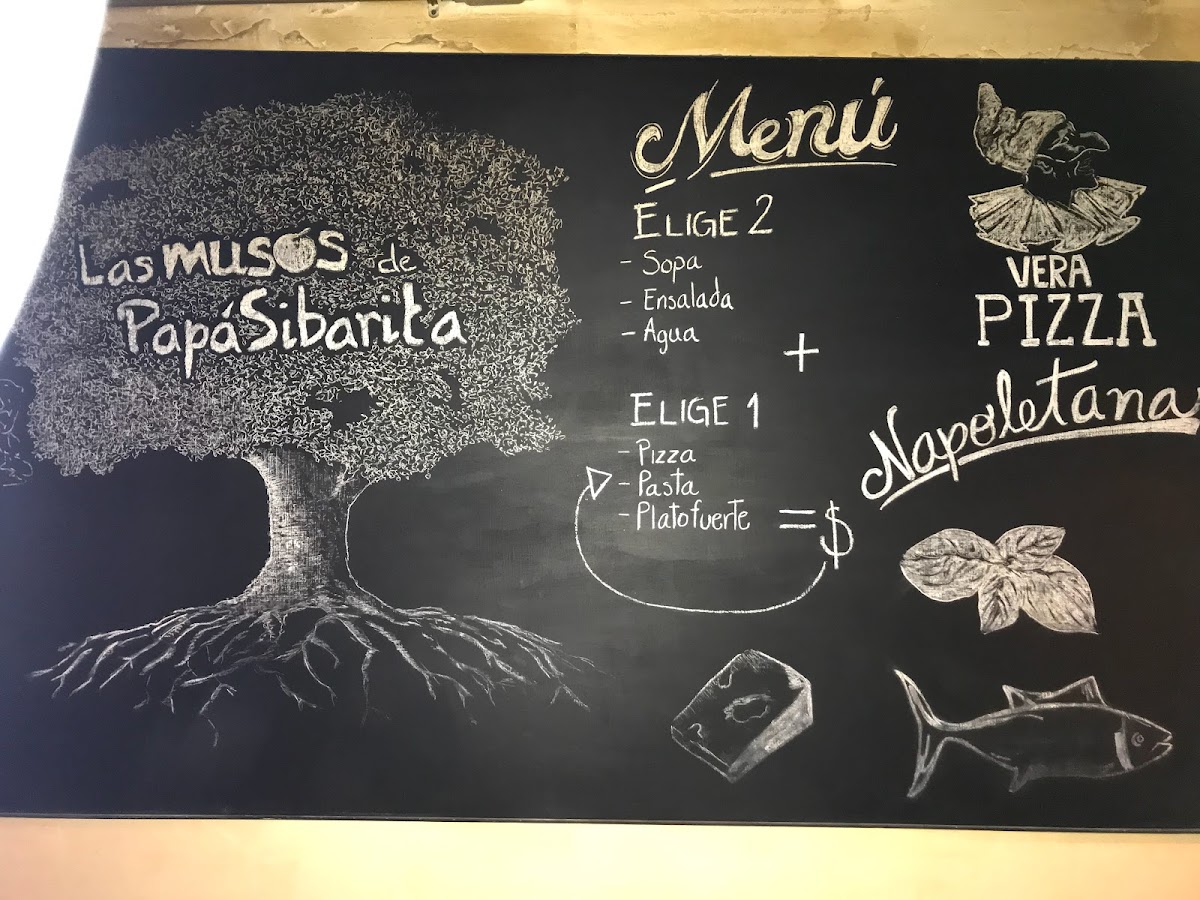 Las musos de
Papá Sibarita
Menú
ELIGE 2
- Sopa
- Ensalada
- Agua
+
ELIGE 1
- Pizza
- Pasta
- Plato fuerte = $
VERA
PIZZA
Napoletana